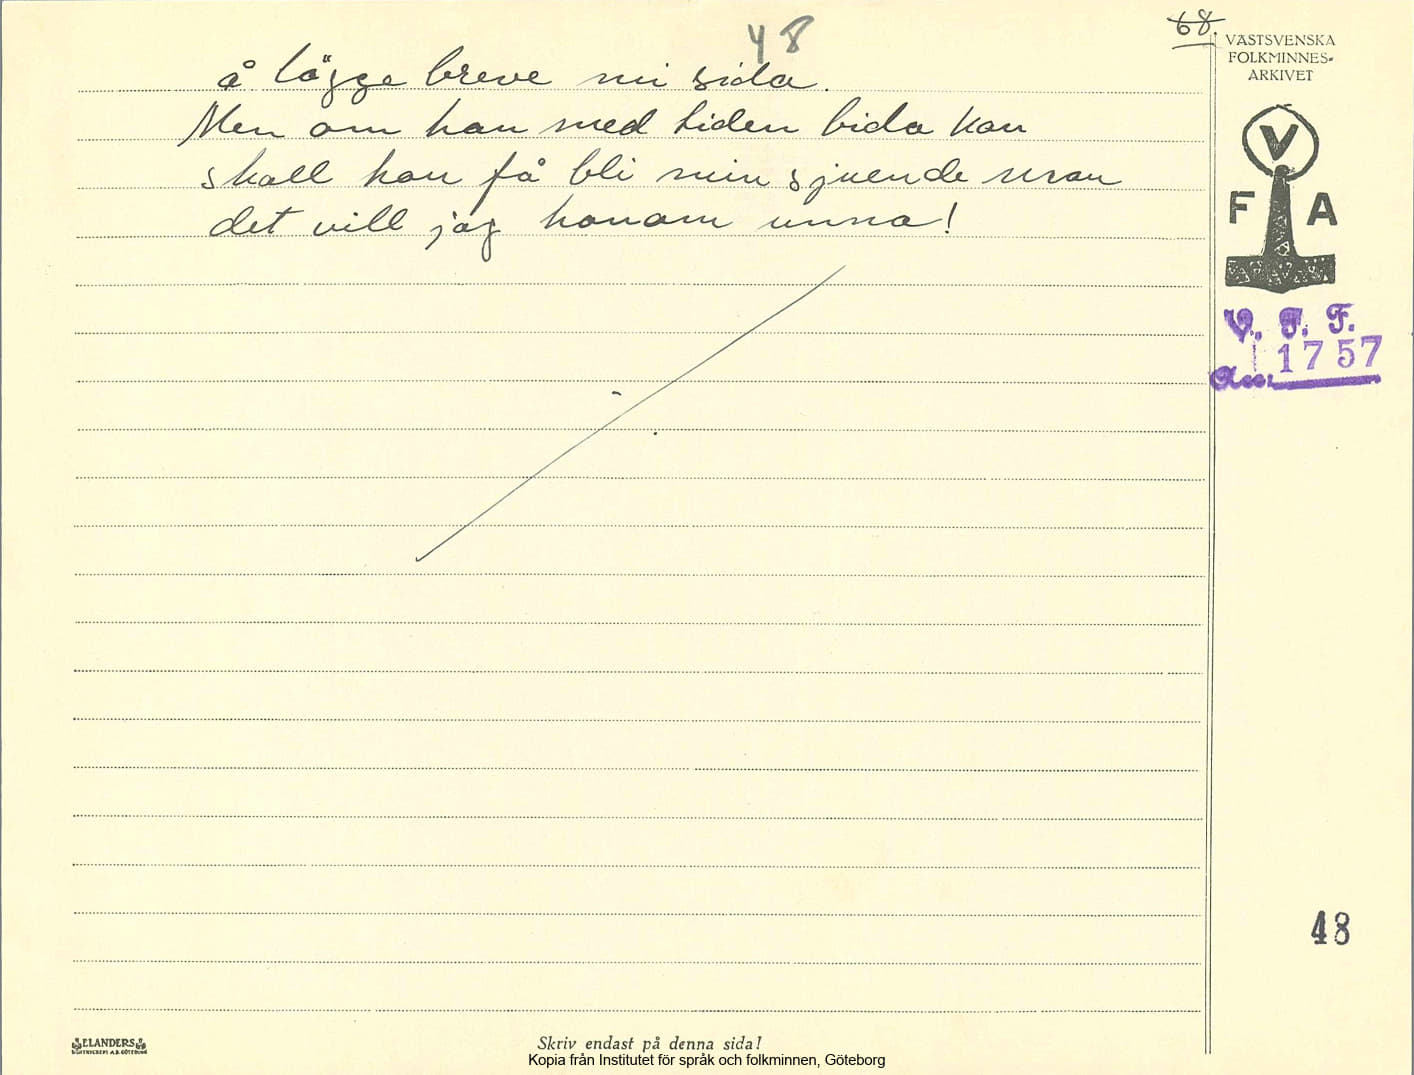 48
68.
å lägge breve mi sida.
Men om han med tiden bida kan
skall han få bli min sjuende man
det vill jag honom unna!
VÄSTSVENSKA
FOLKMINNES-
ARKIVET
V
F A
V. F. F.
Acc: 1757
48
ELANDERS
BOKTRYCKERI A.B. GÖTEBORG
Skriv endast på denna sida!
Kopia från Institutet för språk och folkminnen, Göteborg